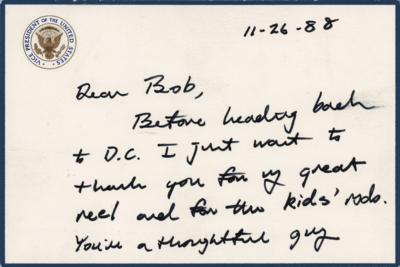 VICE PRESIDENT OF THE UNITED STATES
11-26-88
Dear Bob,
Before heading back
to D.C. I just want to
thank you for my great
reel and for the kids' rods.
You're a thoughtful guy